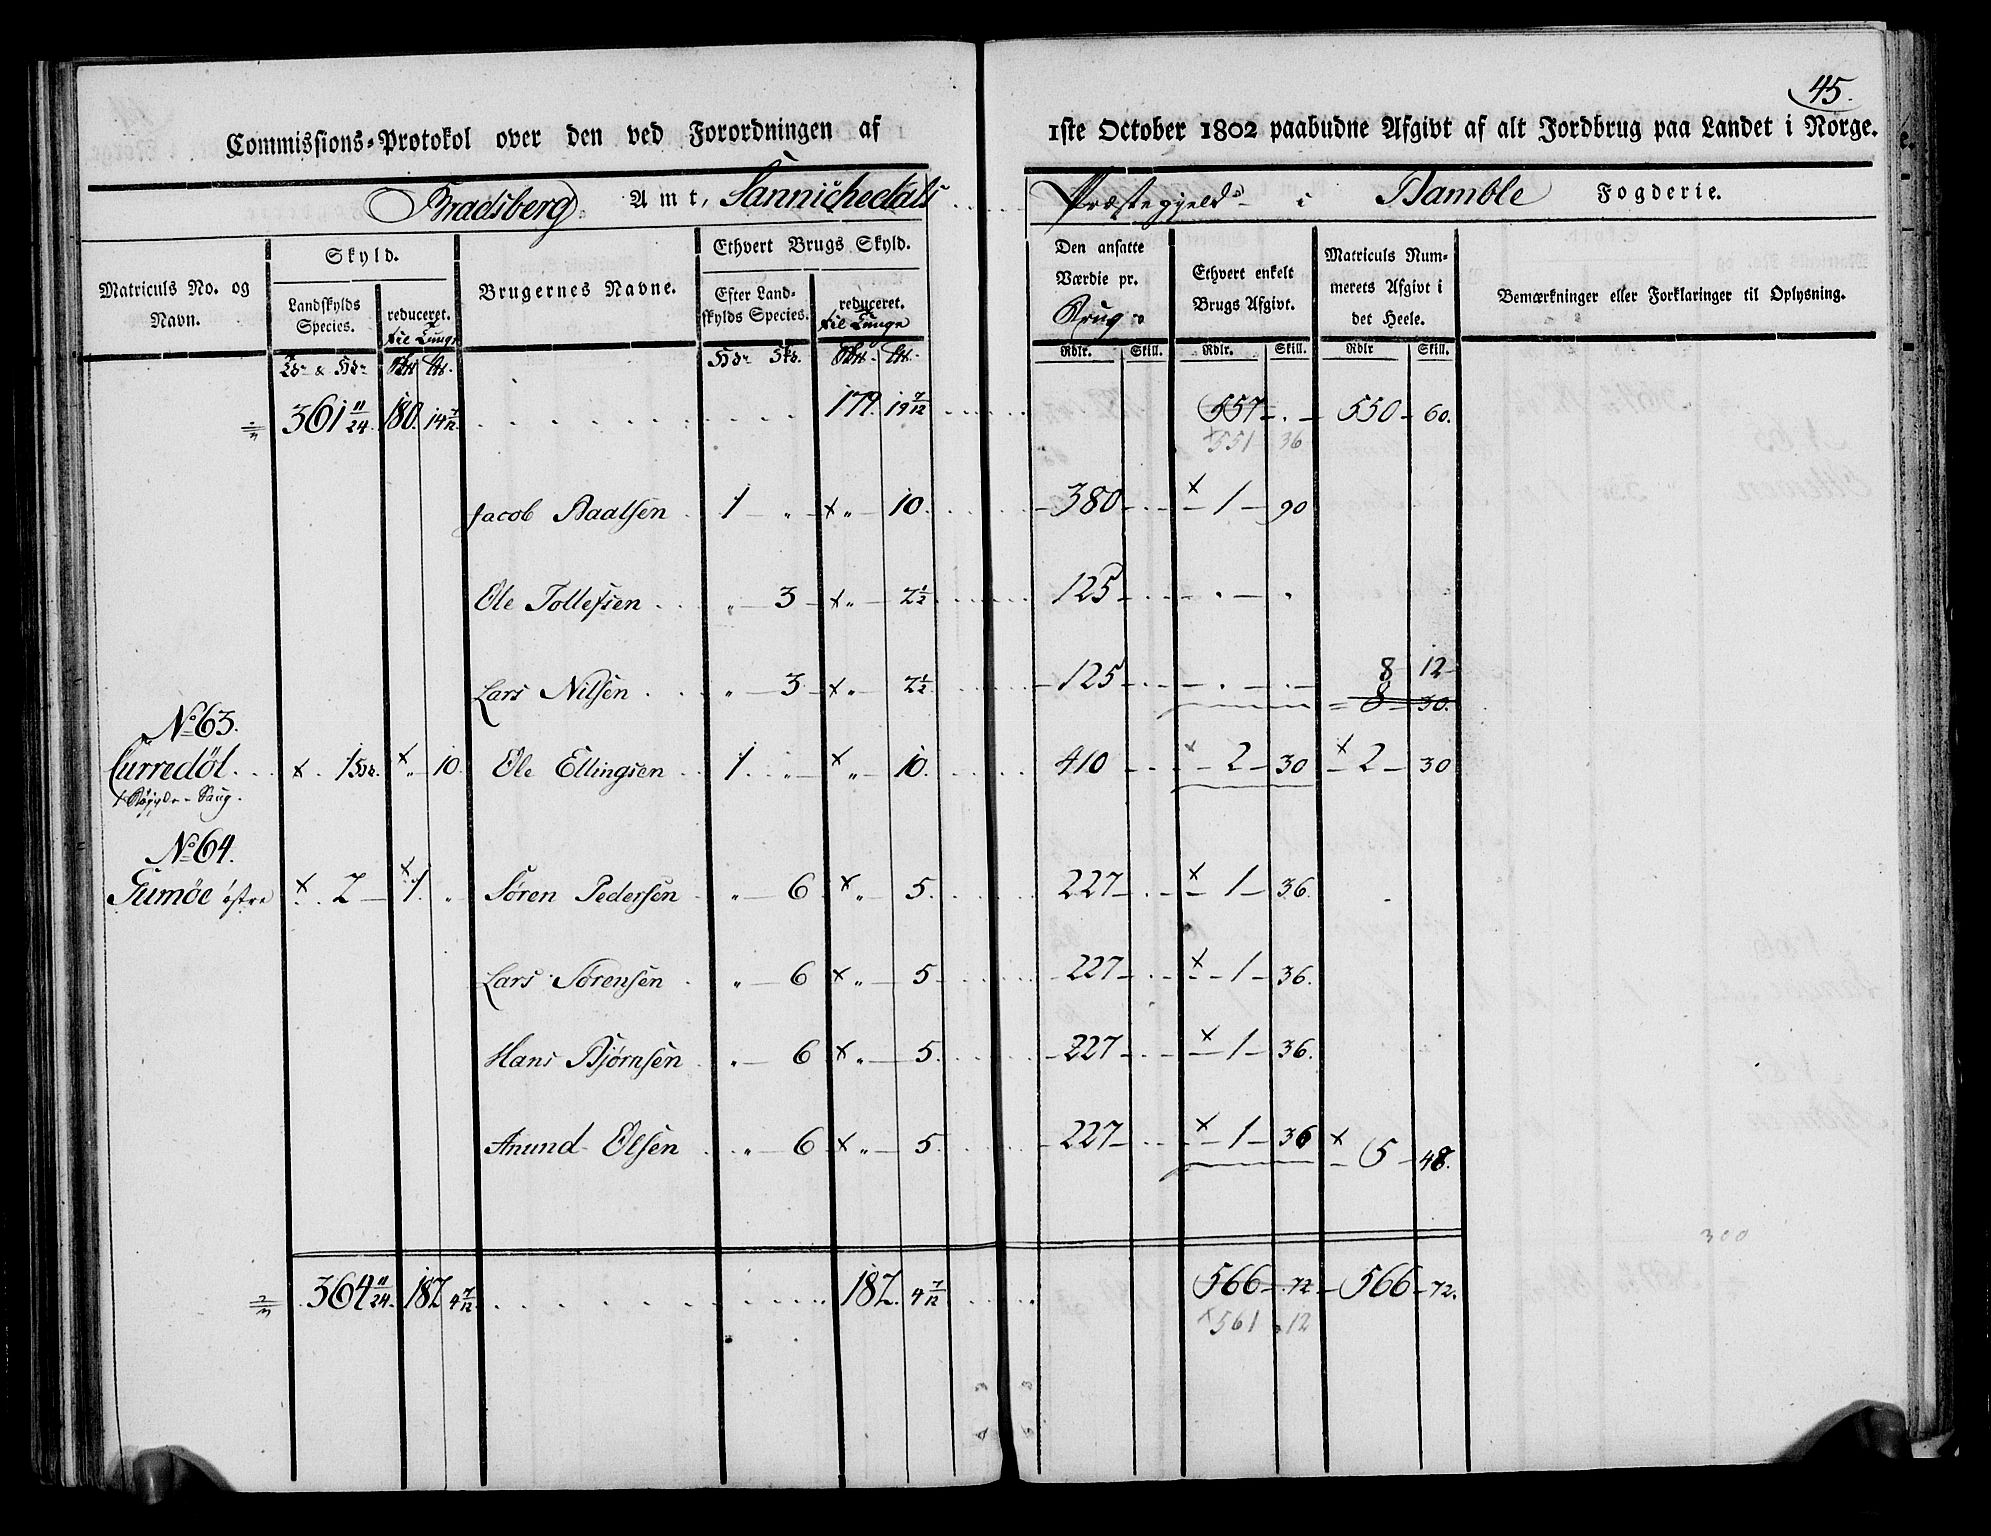 45.
Commissions-Protokol over den ved Forordningen af 1ste October 1802 paabudne Afgivt af alt Jordbrug paa Landet i Norge.
Bradsberg Amt, Sannichedals Præstegjeld i Bamble Fogderie.
Matriculs No. og Navn.
Skyld.
Landskylds Species.
reduceret. til Tunge
Brugernes Navne.
Ethvert Brugs Skyld.
Efter Landskylds Species.
reduceret. til Tunge
Den ansatte Værdie pr. Brug
Ethvert enkelt Brugs Afgivt.
Matriculs Nummerets Afgivt i det Heele.
Bemærkninger eller Forklaringer til Oplysning.
Rdlr. Skill. Rdlr. Skill. Rdlr Skill.
361 11/24. 180. 14 7/12. 179. 19 7/12 557 - . - 550 - 60.
×551 36
Jacob Aaalsen 1 - „ - × „ - 10. 380 - × 1 - 90
Ole Tollefsen „ - 3 - × „ - 2 1/2 125 - . - .
Lars Nilsen „ - 3 - × „ - 2 1/2 125 - . - . 8 12
8 - 30.
No 63.
Curredøl. × 1 × „ - 10. Ole Ellingsen 1 „ × „ - 10. 410 × 2 - 30 × 2 - 30
No 64.
Gumøe østre × 2 - × 1. „ Søren Pedersen „ - 6 × „ - 5. 227 - × 1 - 36.
Lars Sørensen „ - 6 × „ - 5 227 - × 1 - 36.
Hans Bjørnsen „ - 6 × „ - 5. 227 - × 1 - 36.
Anund Olsen „ - 6 × „ - 5. 227 - × 1 - 36 × 5 - 48.
300
364 11/24. 182 4 7/12. 182. 4 7/12 566 - 72 - 566 - 72.
×561 . 12